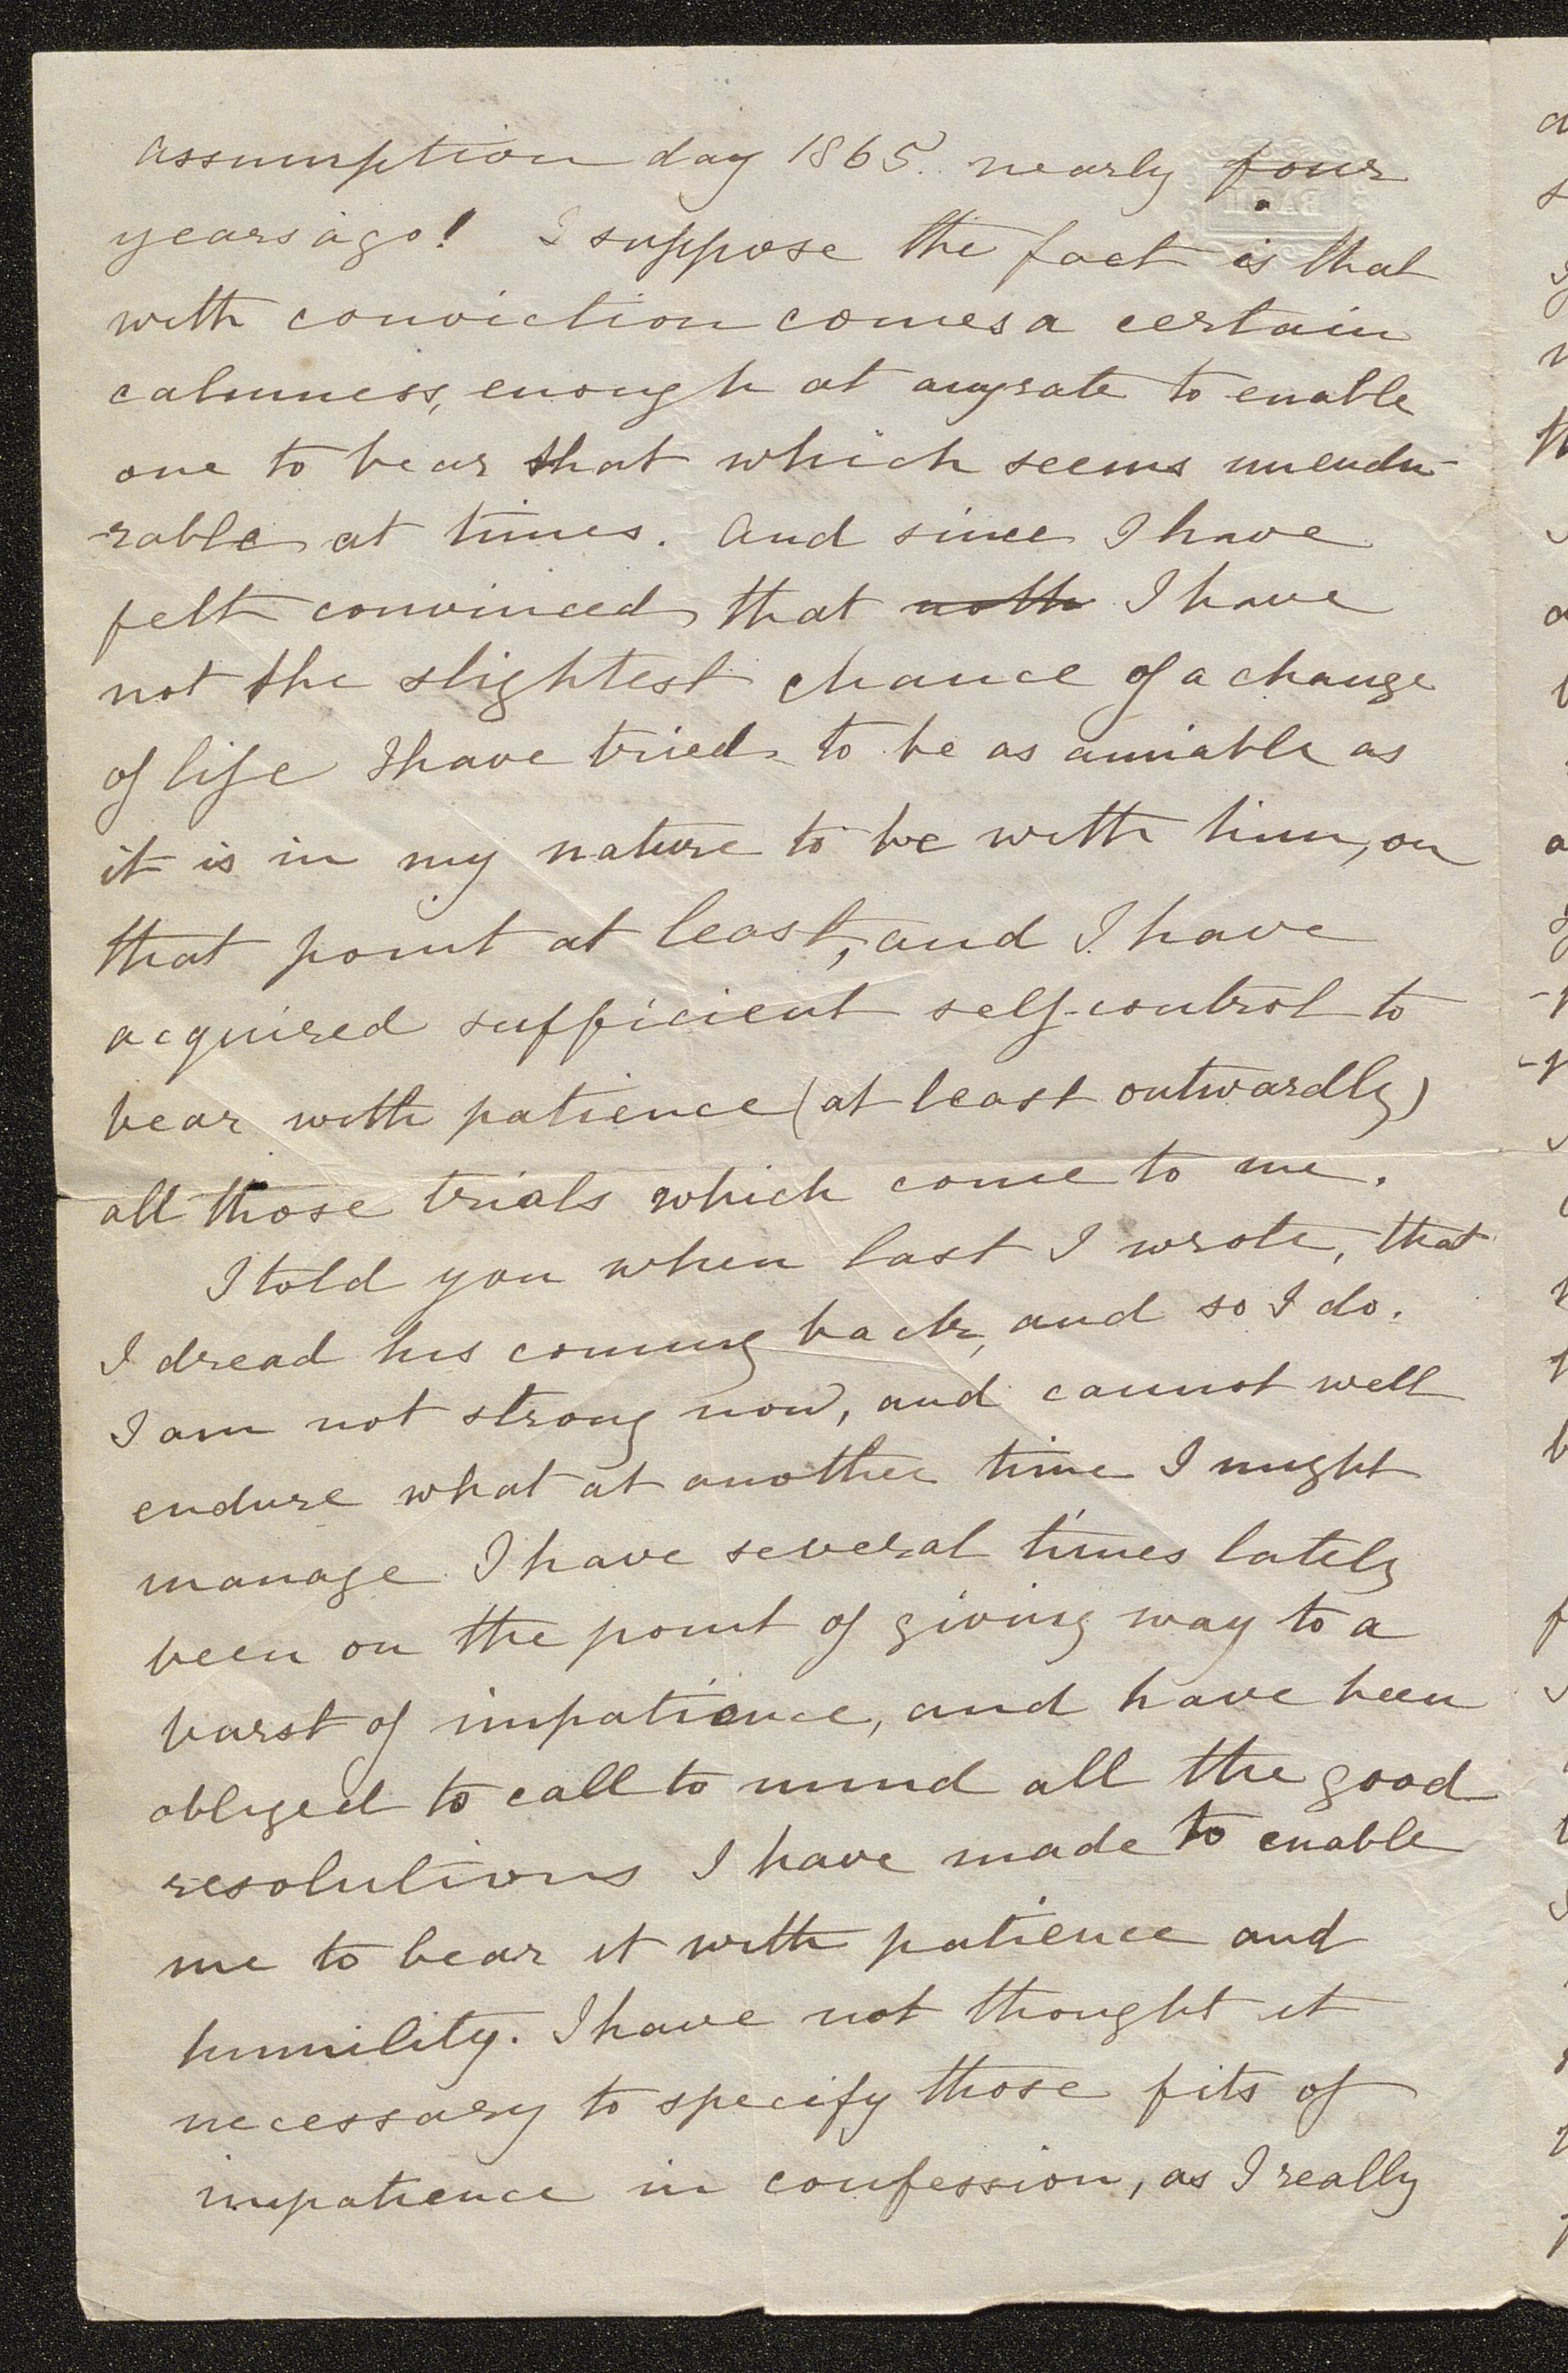 Assumption day 1865. nearly four
years ago! I suppose the fact is that
with conviction comes a certain
calmness, enough at anyrate to enable
one to bear that which seems unendu-
-rable at times. And since I have
felt convinced that noth I have
not the slightest chance of a change
of life I have tried to be as amiable as
it is in my nature to be with him, on
that point at least, and I have
acquired sufficient self-control to
bear with patience (at least outwardly)
all those trials which come to me.
I told you when last I wrote, that
I dread his coming back, and so I do.
I am not strong now, and cannot well
endure what at another time I might
manage. I have several times lately
been on the point of giving way to a
burst of impatience, and have been
obliged to call to mind all the good
resolutions I have made to enable
me to bear it with patience and
humility. I have not thought it
necessary to specify those fits of
impatience in confession, as I really